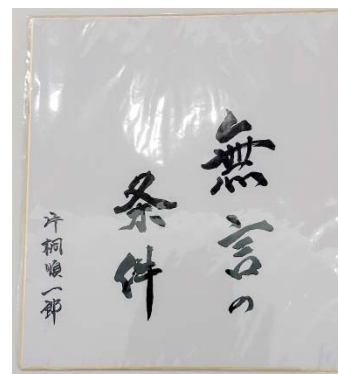 無言の
条件
片桐順一郎